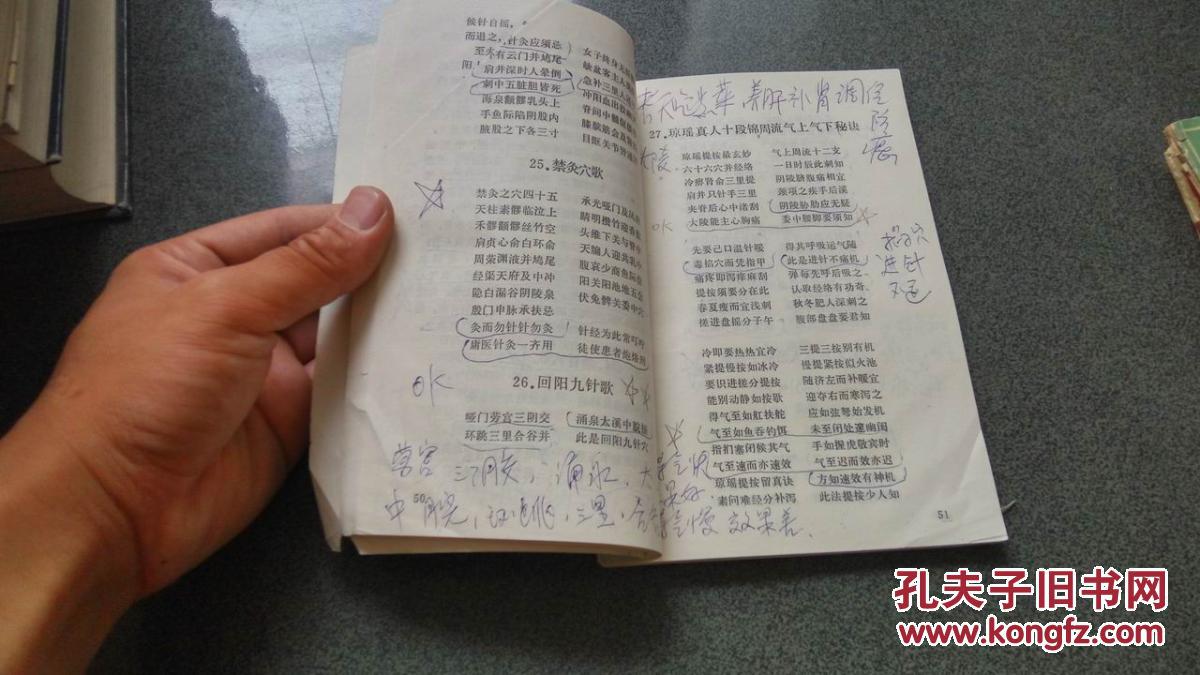 候针自摇,
而退之,针灸应须忌
至夫有云门并鸠尾
阳,肩井深时人晕倒
刺中五脏胆皆死
海泉颧髎乳头上
手鱼际陷阴股内
腋股之下各三寸
女子终身无
缺盆客主人
急补三里人
冲阳血出
脊间中髓
膝膑筋会
目眶关节
25.禁灸穴歌
禁灸之穴四十五 承光哑门及风府
天柱素髎临泣上 睛明攒竹迎香
禾髎颧髎丝竹空 头维下关与脊中
肩贞心俞白环俞 天牖人迎共乳中
周荣渊液并鸠尾 腹哀少商鱼际
经渠天府及中冲 阳关阳池地五会
隐白漏谷阴陵泉 伏兔髀关委中穴
殷门申脉承扶忌
灸而勿针针勿灸 针经为此常叮咛
庸医针灸一齐用 徒使患者炮烙刑
OK
26.回阳九针歌
哑门劳宫三阴交 涌泉太溪中脘接
环跳三里合谷并 此是回阳九针穴
劳宫 三阴交,涌泉,太
中脘,环跳,三里,合
50
养肝补肾调
27.琼瑶真人十段锦周流气上气下秘诀
琼瑶提按最玄妙 气上周流十二支
六十六穴并经络 一日时辰此刺知
冷痹肾俞三里提 阴陵脐腹痛相宜
肩井只针手三里 颈项之疾手后溪
夹脊后心中渚刮 阴陵胁肋应无疑
大陵能主心胸痛 委中腰脚要须知
OK
先要己口温针暖 得其呼吸运气随
毒掐穴而凭指甲 此是进针不痛机
痛疼即泻痒麻刮 弹每先呼后吸之
提按须要分在此 认取经络有功奇
春夏瘦而宜浅刺 秋冬肥人深刺之
搓进盘摇分子午 腹部盘盘要君知
掐穴
进针
冷即要热热宜冷 三提三按别有机
紧提慢按如冰冷 慢提紧按似火池
要识进搓分提按 随济左而补暖宜
能别动静如按歌 迎夺右而寒泻之
得气至如舡扶舵 应如弦弩始发机
气至如鱼吞钓饵 未至闭处邃幽闺
指扪塞闭候其气 手如握虎敬宾时
气至速而亦速效 气至迟而效亦迟
琼瑶提按留真诀 方知速效有神机
素问难经分补泻 此法提按少人知
慢 效果差.
51
孔夫子旧书网
www.kongfz.com